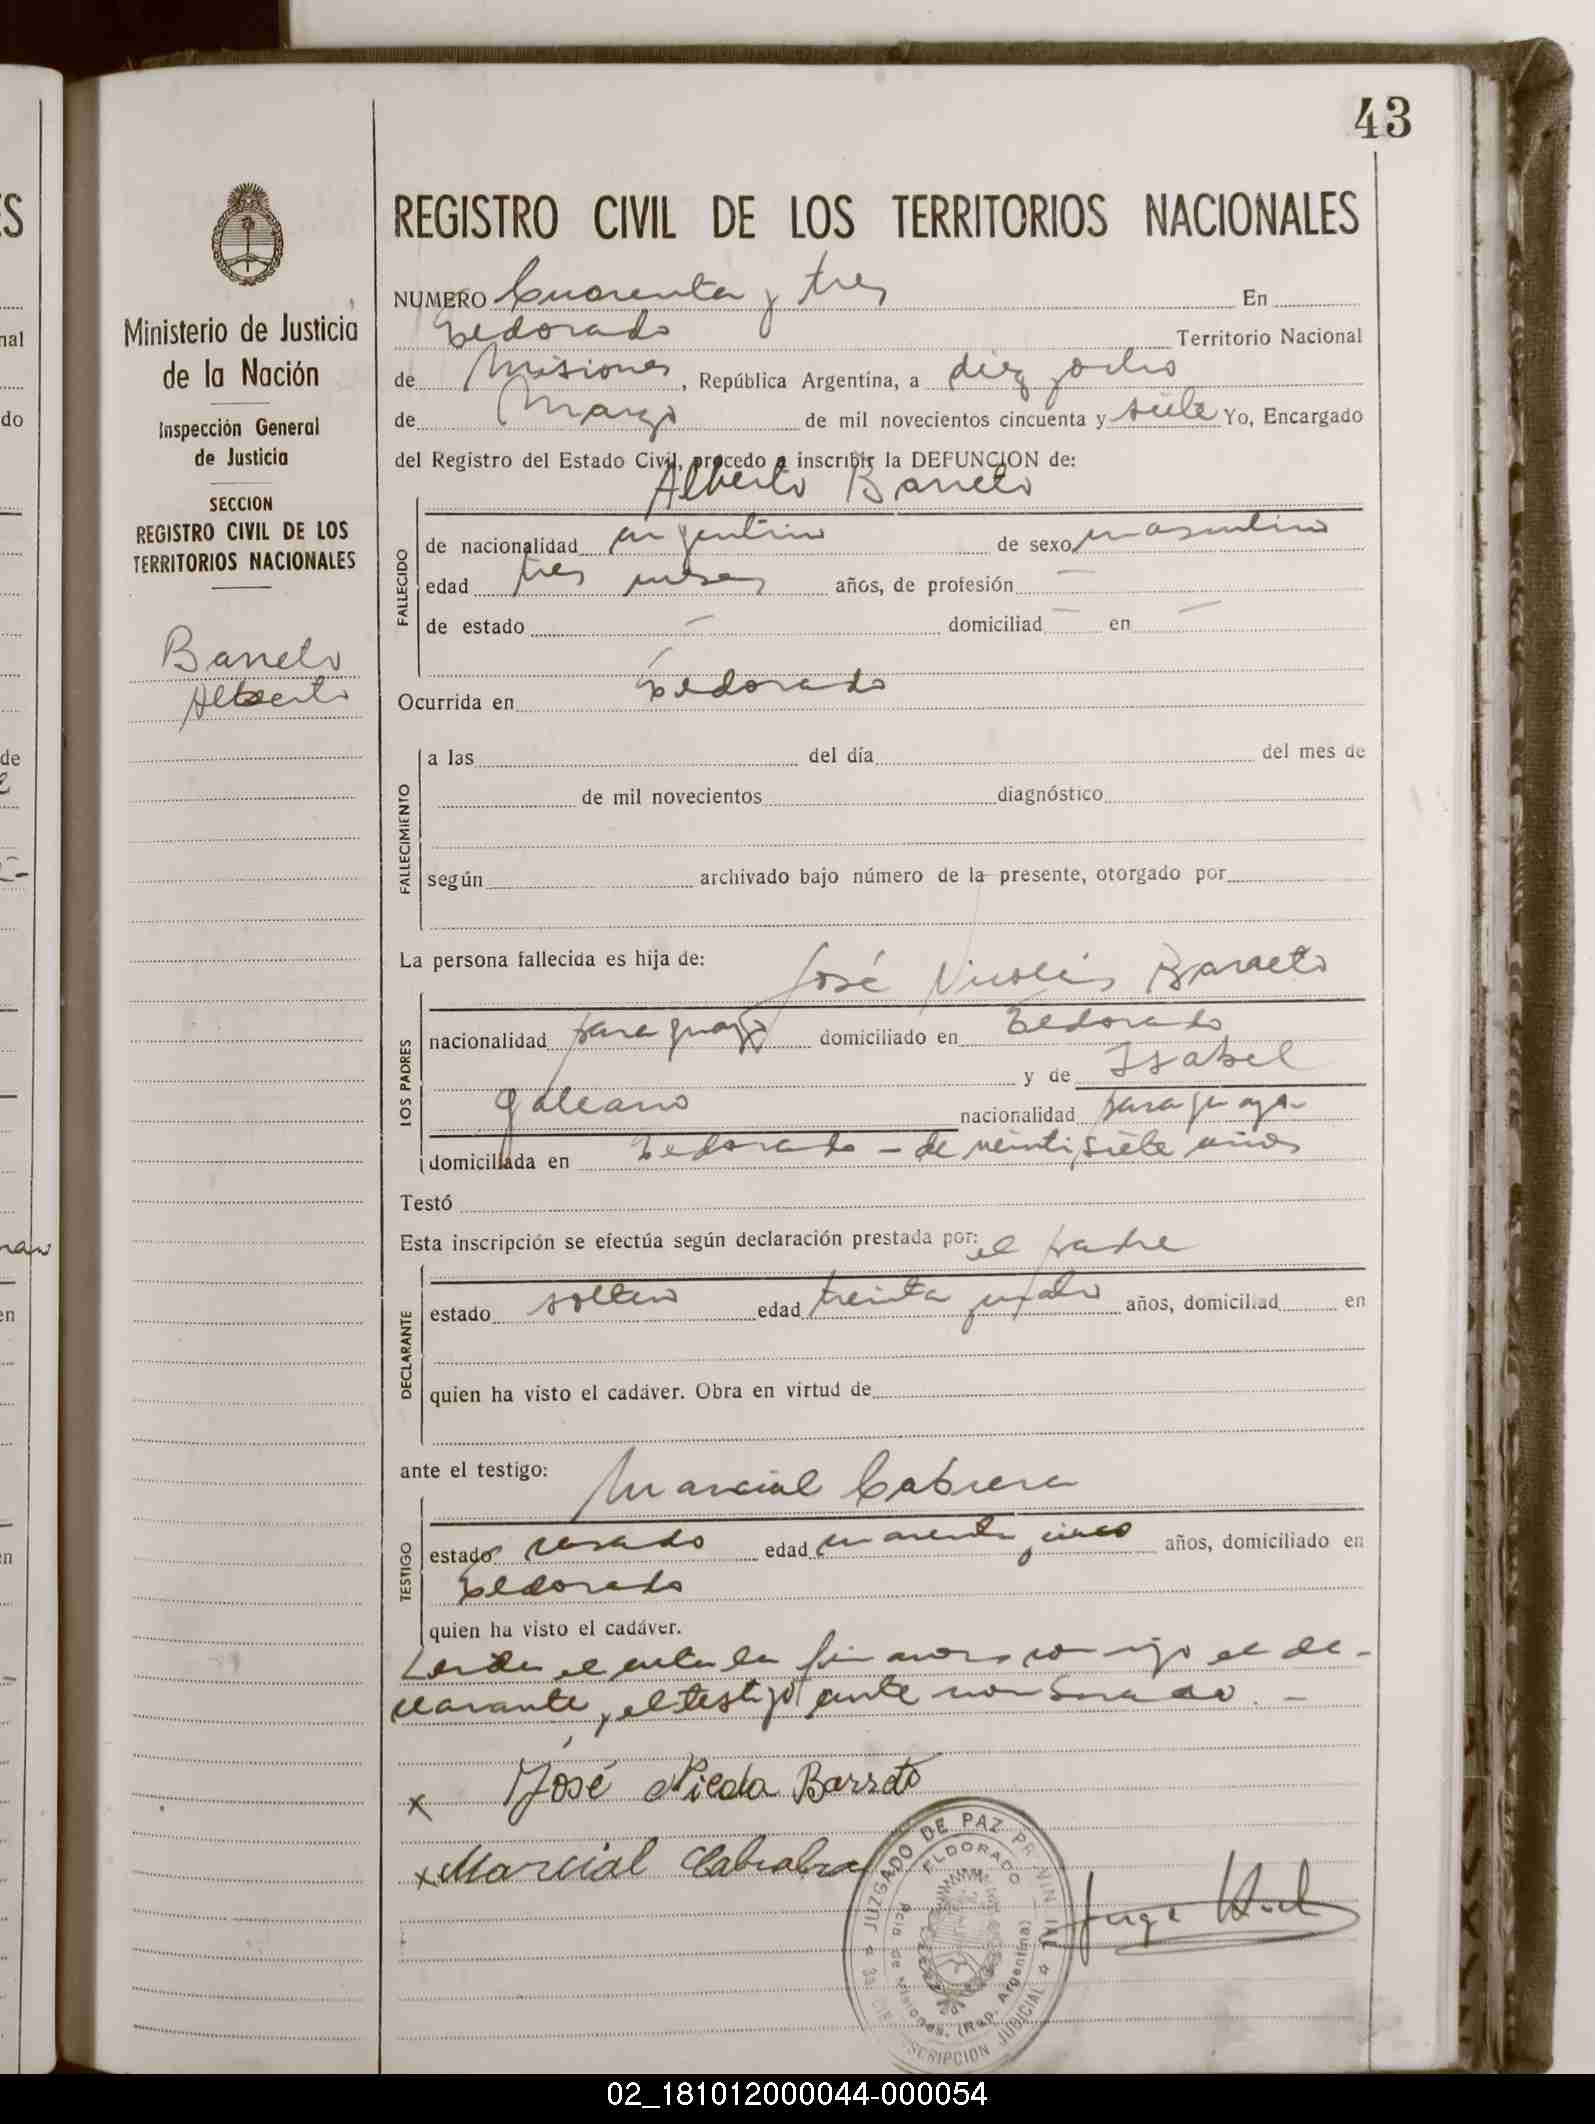 43
REGISTRO CIVIL DE LOS TERRITORIOS NACIONALES
Ministerio de Justicia
de la Nación
Inspección General
de Justicia
SECCION
REGISTRO CIVIL DE LOS
TERRITORIOS NACIONALES
Barreto
Alberto
NUMERO Cuarenta y tres En
Eldorado Territorio Nacional
de Misiones, República Argentina, a diez y ocho
de Marzo de mil novecientos cincuenta y siete Yo, Encargado
del Registro del Estado Civil, procedo a inscribir la DEFUNCION de:
Alberto Barreto
FALLECIDO
de nacionalidad argentino de sexo masculino
edad tres meses años, de profesión —
de estado — domiciliad — en —
Ocurrida en Eldorado
FALLECIMIENTO
a las del día del mes de
de mil novecientos diagnóstico
según archivado bajo número de la presente, otorgado por
La persona fallecida es hija de: José Nicolás Barreto
LOS PADRES
nacionalidad paraguayo domiciliado en Eldorado
y de Isabel
Galeano nacionalidad paraguaya
domiciliada en Eldorado - de veintisiete años
Testó
Esta inscripción se efectúa según declaración prestada por: el padre
DECLARANTE
estado soltero edad treinta y años, domiciliad en
quien ha visto el cadáver. Obra en virtud de
ante el testigo: Marcial Cabrera
TESTIGO
estado casado edad cuarenta y cinco años, domiciliado en
Eldorado
quien ha visto el cadáver.
Leida el acta la firmaron conmigo el de-
clarante, y el testigo ante nombrado. -
x José Barreto
x Marcial
JUZGADO DE PAZ PROVINCIAL
ELDORADO
Pcia de Misiones. (Rep. Argentina)
CIRCUNSCRIPCION JUDICIAL
Jorge
02_181012000044-000054